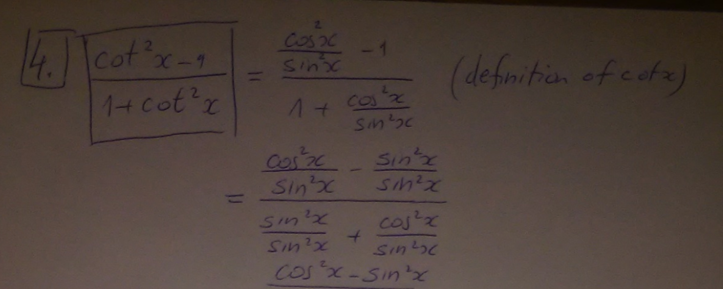 4. cot²x-1 / 1+cot²x = cos²x/sin²x - 1 / 1 + cos²x/sin²x (definition of cotx)
= cos²x/sin²x - sin²x/sin²x / sin²x/sin²x + cos²x/sin²x
cos²x-sin²x